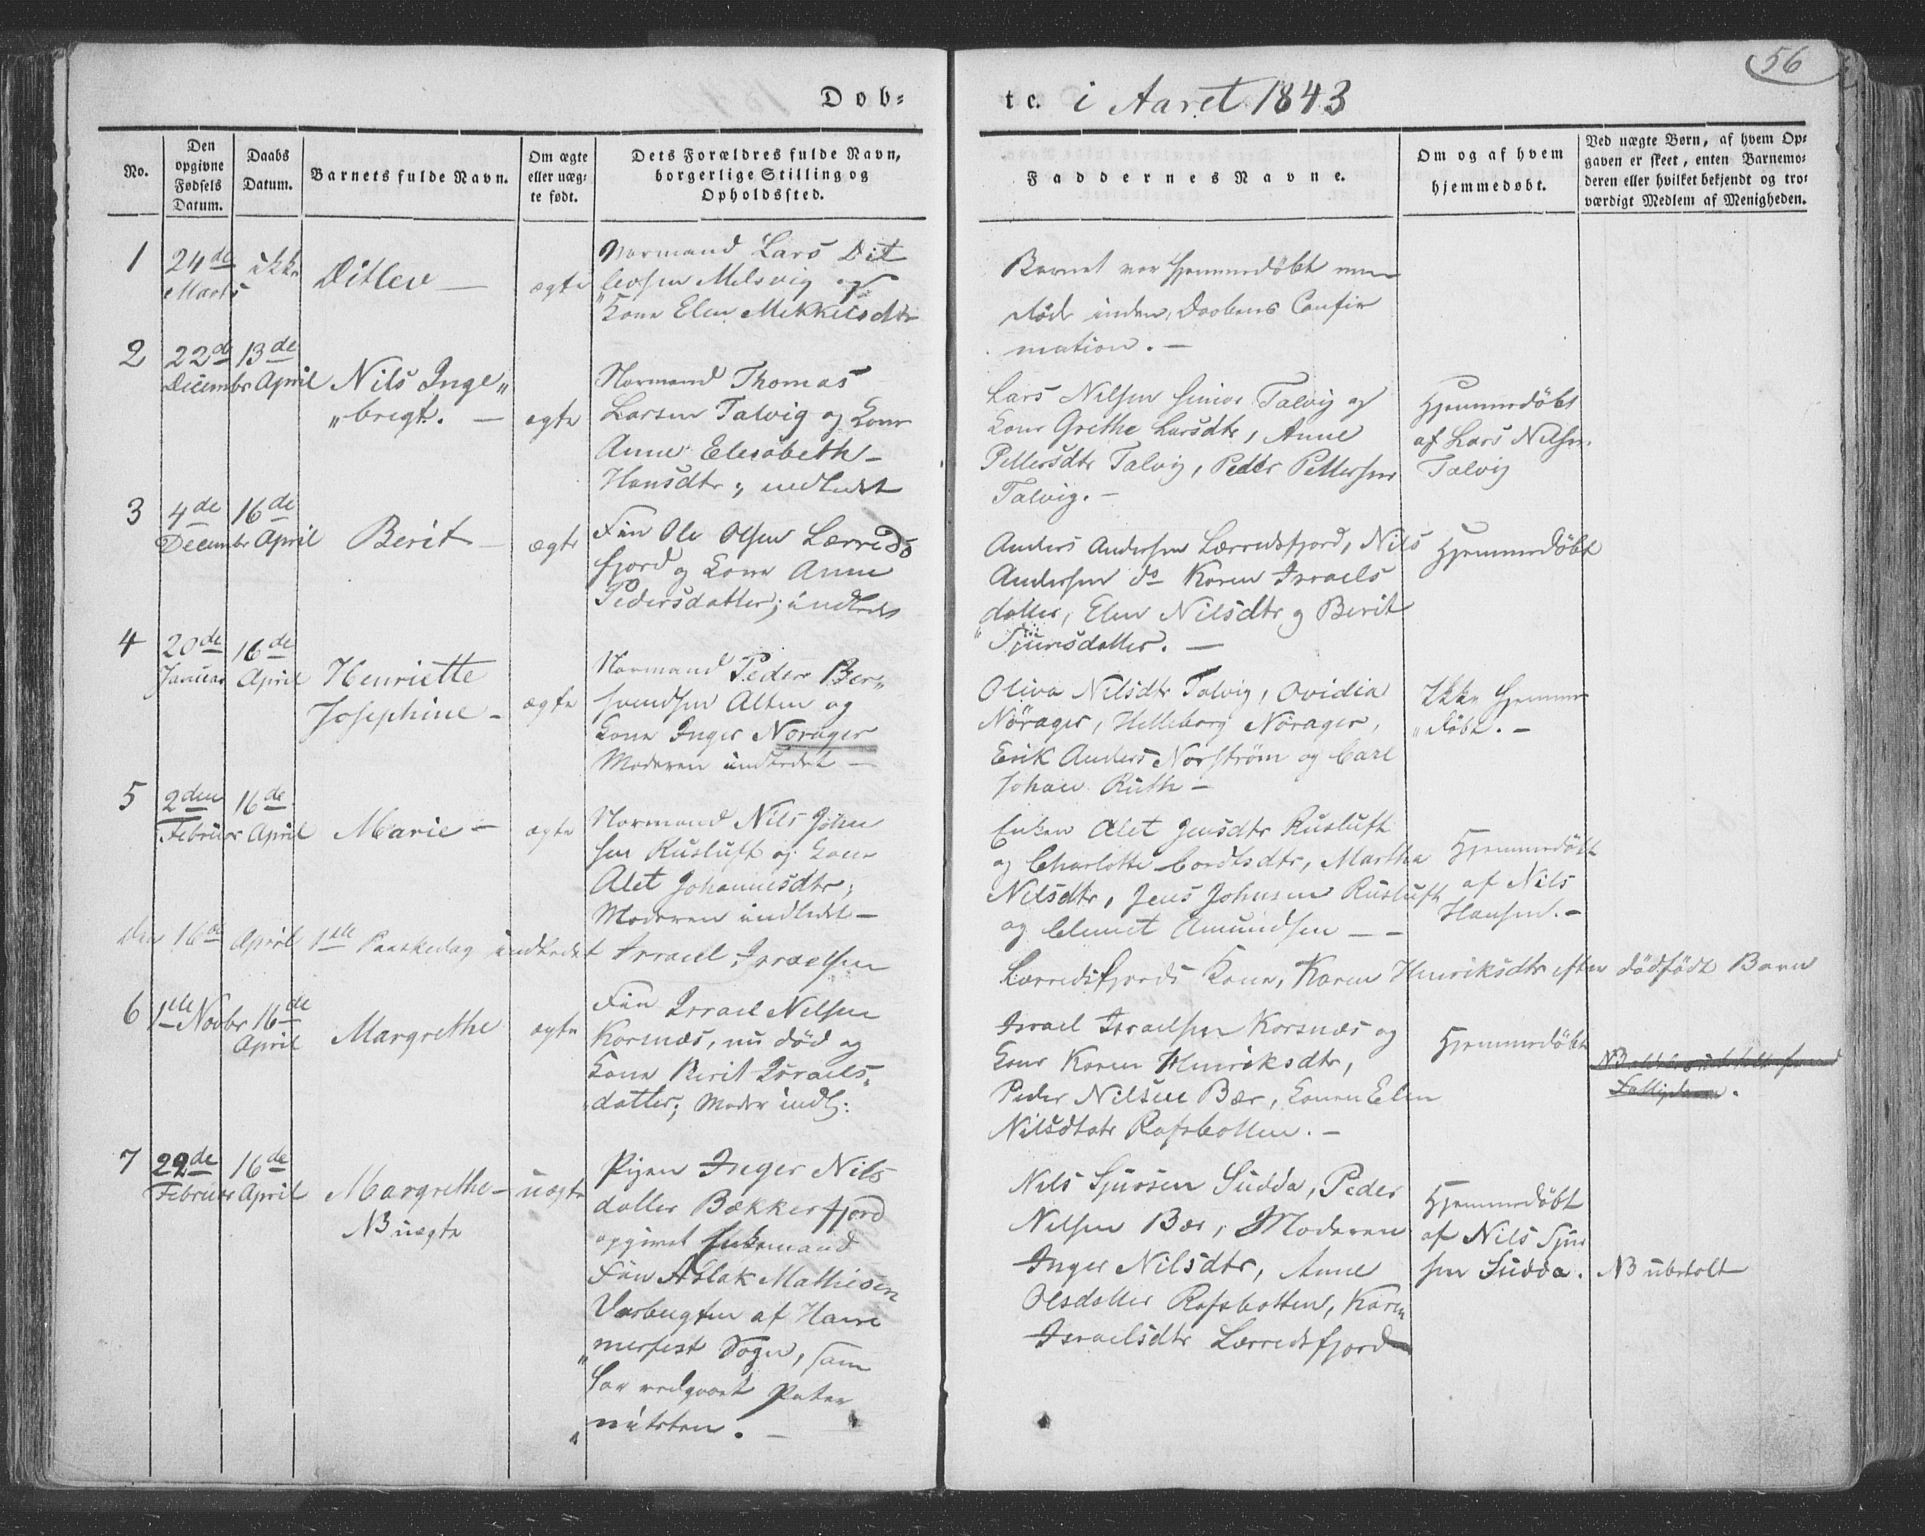 56
Døb-
te. i Aaret 1843
No.
Den opgivne Fødsels Datum.
Daabs Datum.
Barnets fulde Navn.
Om ægte eller uægte født.
Dets Forældres fulde Navn, borgerlige Stilling og Opholdssted.
Faddernes Navne.
Om og af hvem hjemmedøbt.
Ved uægte Børn, af hvem Opgaven er skeet, enten Barnemoderen eller hvilket bekjendt og troværdigt Medlem af Menigheden.
1
24de Marts
ikke
Ditlev —
ægte
Normand Lars Dit
levsen Melsvig og
Kone Elen Mikkelsdtr
Barnet var hjemmedøbt men
døde inden Daabens Confir
mation. —
2
22de December
13de April
Nils Inge„
„brigt. —
ægte
Normand Thomas
Larsen Talvig og Kone
Anne Elesabeth
Hansdtr; indledet
Lars Nilsen senior Talvig og
Kone Grethe Larsdtr, Anne
Pettersdtr Talvig, Peder Pettersen
Talvig. —
Hjemmedøbt
af Lars Nilsen
Talvig
3
4de December
16de April
Berit —
ægte
Fin Ole Olsen Lærreds
fjord og Kone Anne
Pedersdatter; indledet
Anders Andersen Lærredsfjord, Nils
Andersen do Karen Israels
datter, Elen Nilsdtr og Berit
Sjursdatter. —
Hjemmedøbt
4
20de Januar
16de April
Henriette
Josephine —
ægte
Normand Peder Ber„
svendsen Alten og
Kone Inger Norager
Moderen indledet —
Oliva Nilsdtr Talvig, Ovidia
Nørager, Helleborg Nørager,
Erik Anders Norstrøm og Carl
Johan Ruth —
Ikke hjemme
„døbt. —
5
2den Februar
16de April
Marie —
ægte
Normand Nils John
sen Rusluft og Kone
Alet Johannesdtr;
Moderen indledet —
Enken Alet Jensdtr Rusluft
og Charlotte Cordtsdtr, Martha
Nilsdtr, Jens Johnsen Rusluft
og Clemet Amundsen —
Hjemmedøbt
af Nils
Hansen. —
den 16de April 1ste Paaskedag indledet Israel Israelsen
Lærredsfjords Kone, Karen Henriksdtr efter dødfødt Barn
6
1ste Novbr
16de April
Margrethe
ægte
Fin Israel Nilsen
Korsnæs, nu død og
Kone Berit Israels
datter; Moder indl:
Israel Israelsen Korsnæs og
Kone Karen Henriksdtr,
Peder Nilsen Bær, Konen Elen
Nilsdtatr Rafsbotten. —
Hjemmedøbt
NB
7
22de Februar
16de April
Margrethe —
NB uægte
uægte
Pigen Inger Nils
datter Bækkerfjord
opgivet Enkemand
Fin Aslak Mathiesen
Varbugten af Ham
„merfest Sogn, som
har vedgaaet Pater
„niteten. —
Nils Sjursen Sudda, Peder
Nilsen Bær, Moderen
Inger Nilsdtr, Anne
Olsdatter Rafsbotten, Karen
Israelsdtr Lærredsfjord
Hjemmedøbt
af Nils Sjur
sen Sudda.
NB ubetalt